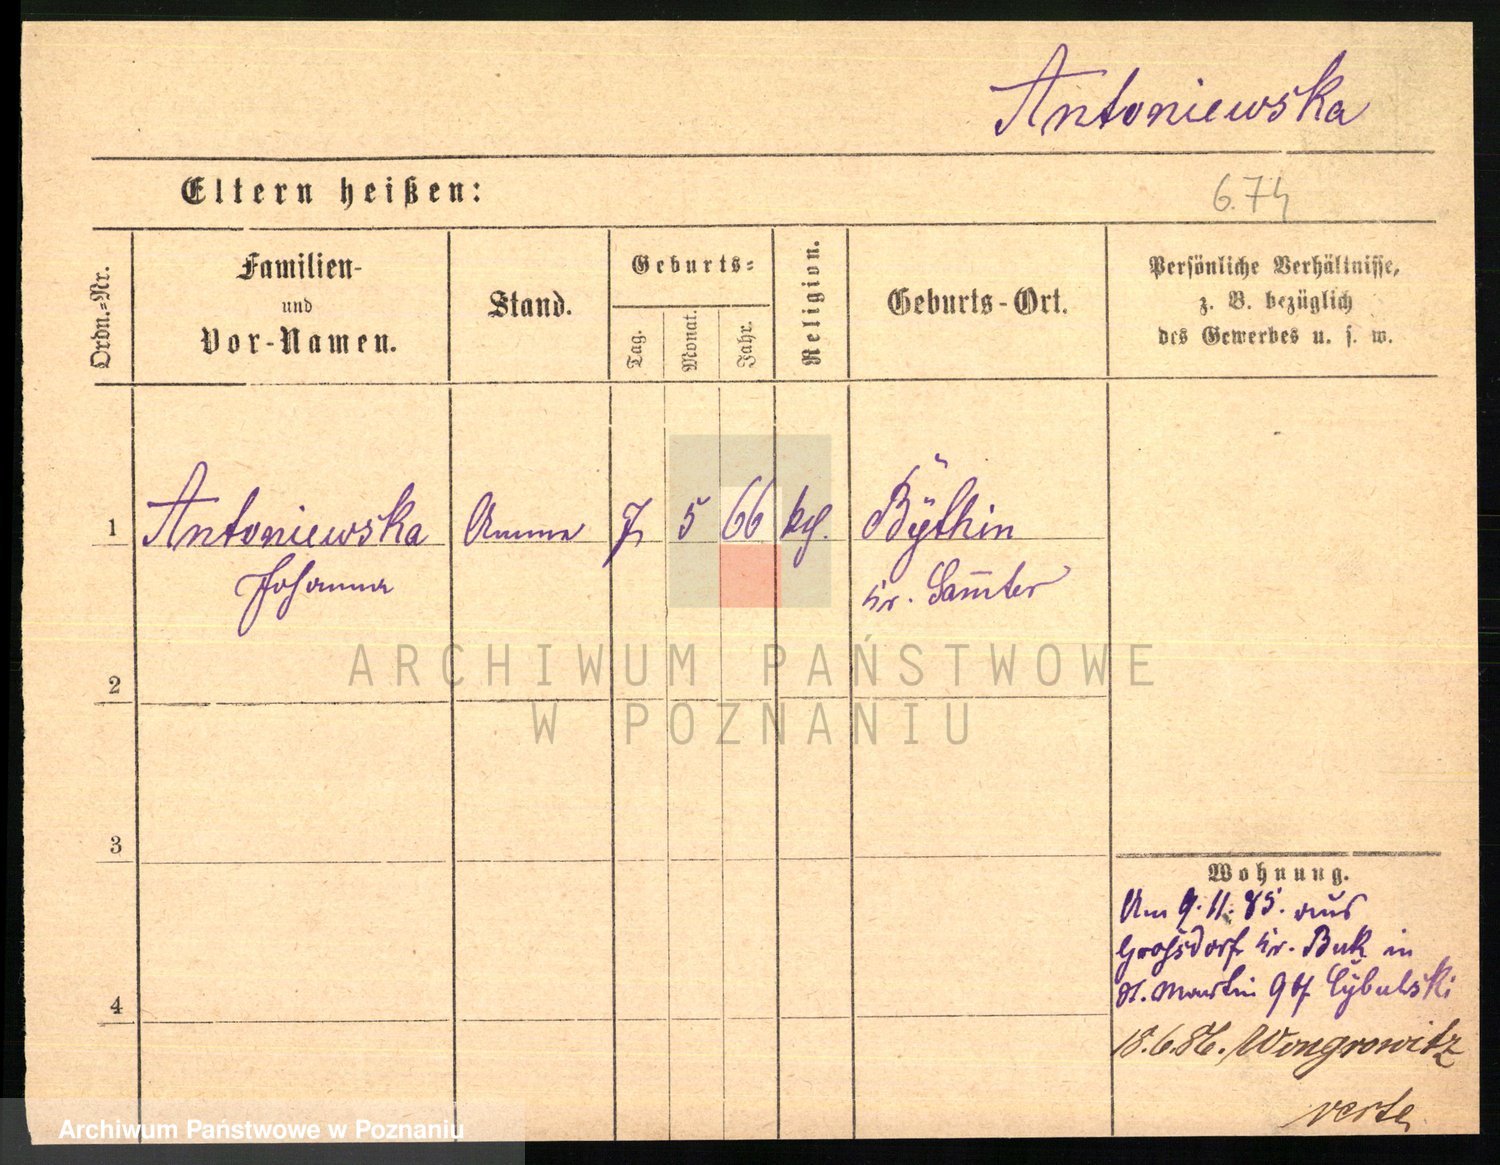 Antoniewska
Eltern heißen:
6.74
Ordn.-Nr.
Familien-
und
Vor-Namen.
Stand.
Geburts-
Tag.
Monat.
Jahr.
Religion.
Geburts-Ort.
Persönliche Verhältnisse,
z. B. bezüglich
des Gewerbes u. s. w.
1
Antoniewska Amme 7 5 66 kth. Bÿthin
Johanna Kr. Samter
2
3
4
Wohnung.
Am 9.11.85. aus
Grossdorf Kr. Buk in
St. Martin 9 bf Cybulski
18.6.86. Wongrowitz
verte
ARCHIWUM PAŃSTWOWE
W POZNANIU
Archiwum Państwowe w Poznaniu